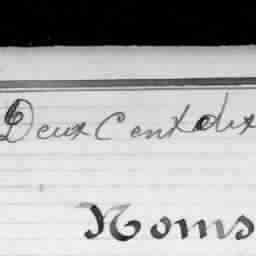 Deux Cent dix
Noms